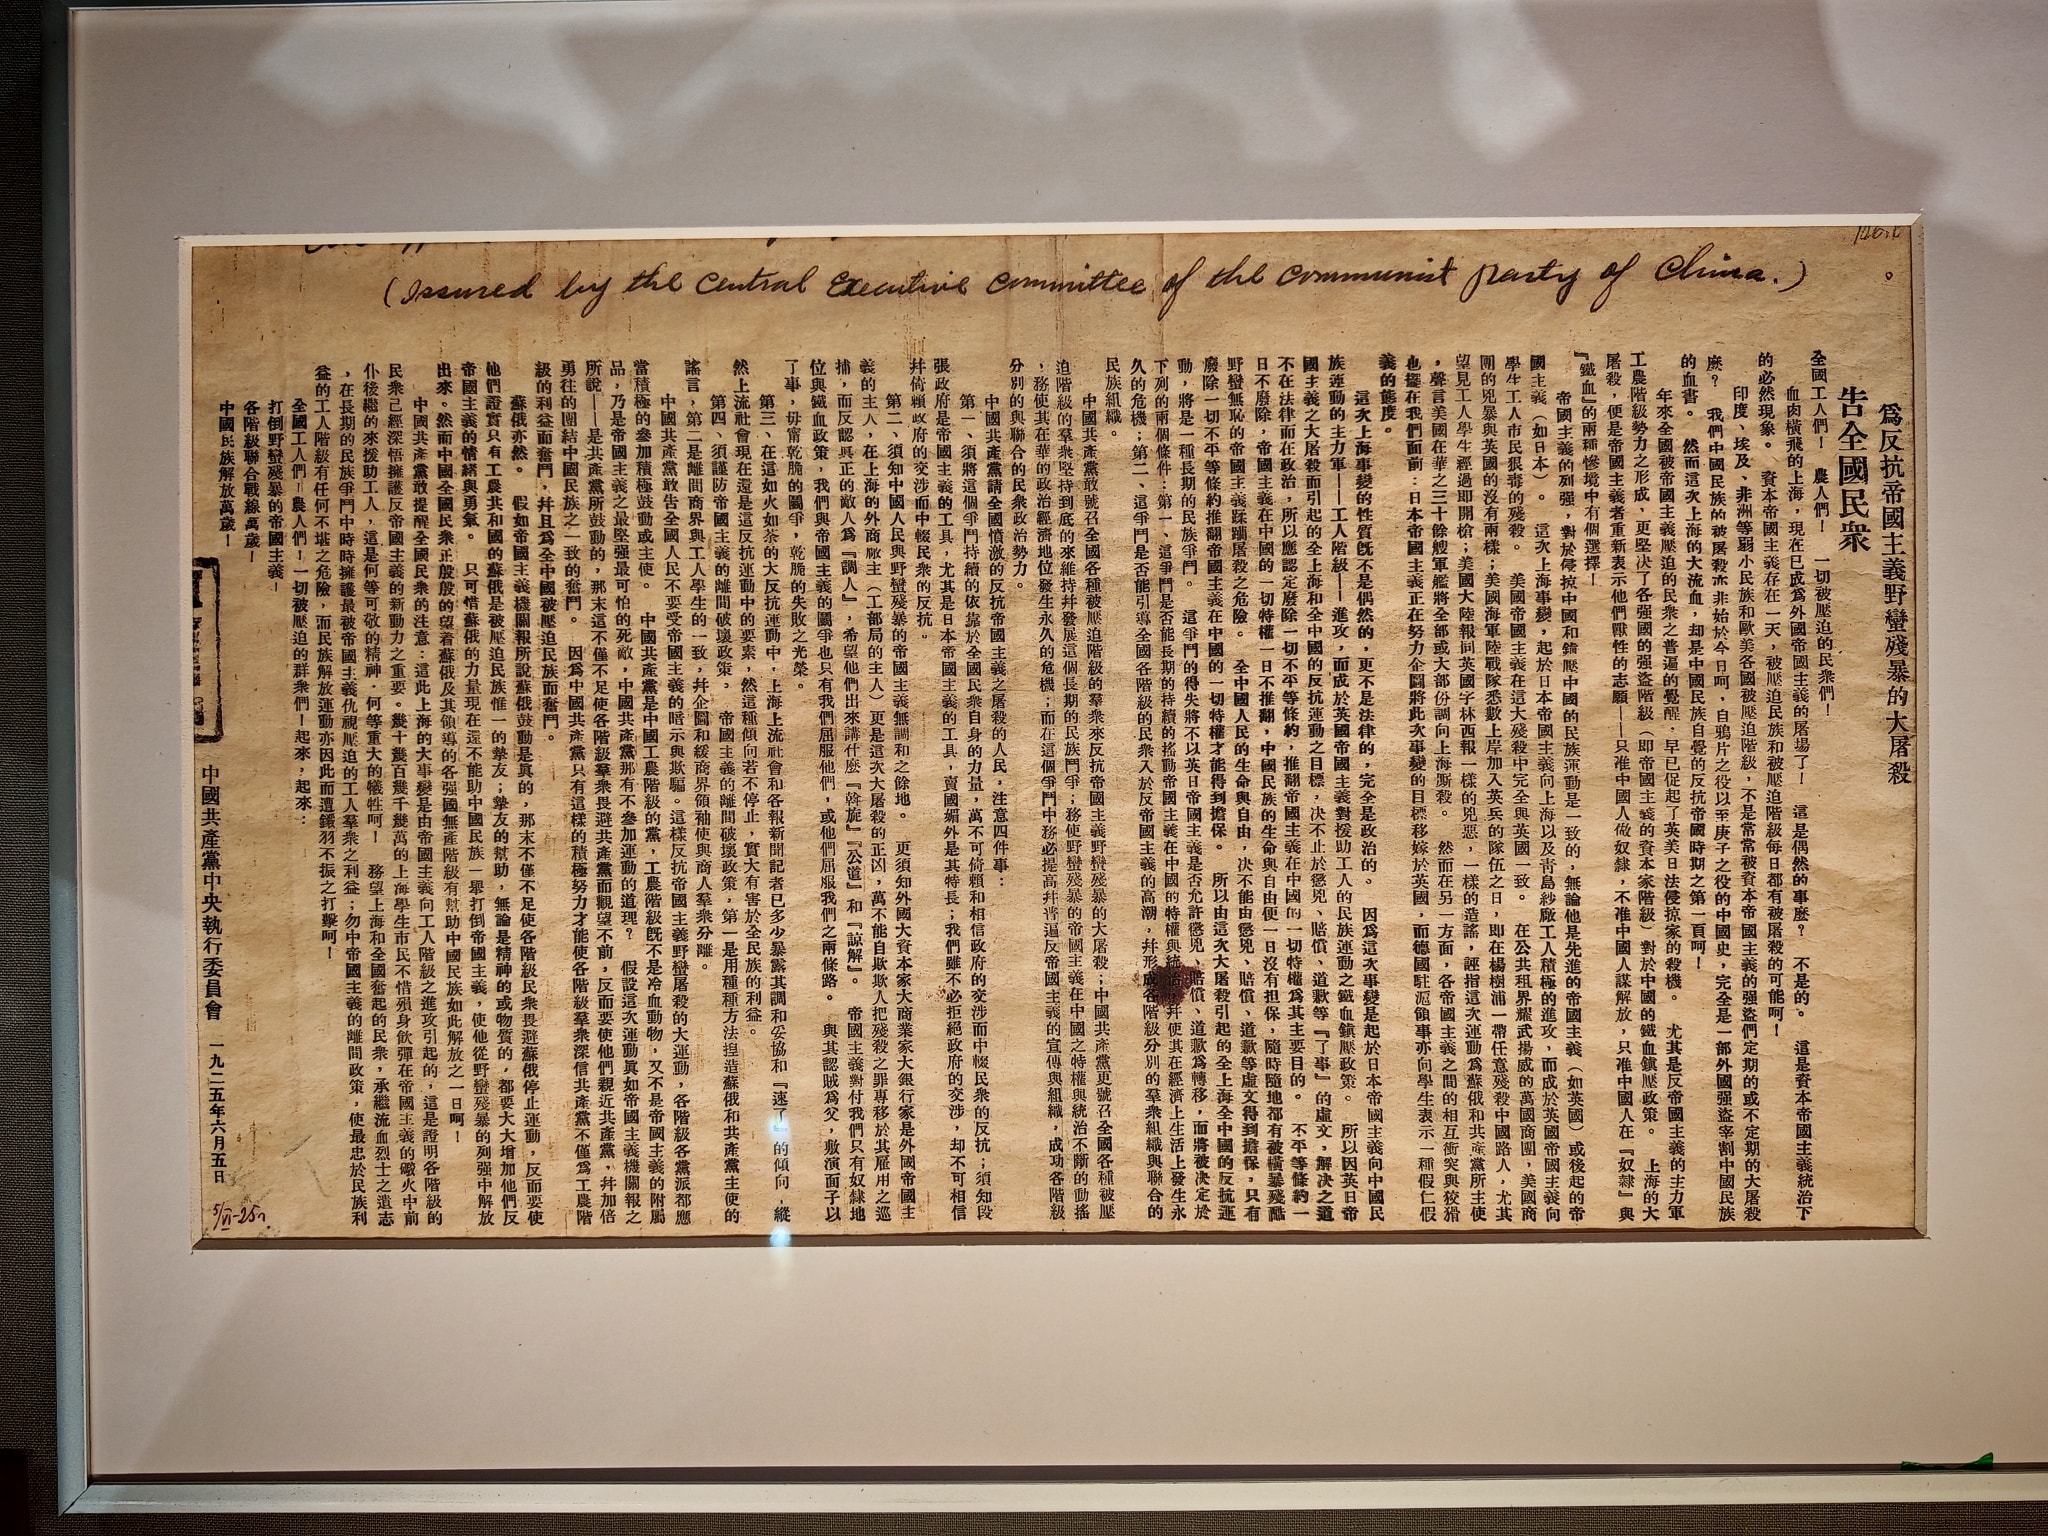 (Issued by the Central Executive Committee of the Communist Party of China.)
爲反抗帝國主義野蠻殘暴的大屠殺
告全國民衆
全國工人們！　農人們！　一切被壓迫的民衆們！
血肉橫飛的上海，現在已成爲外國帝國主義的屠場了！　這是偶然的事麽？　不是的。　這是資本帝國主義統治下
的必然現象。　資本帝國主義存在一天，被壓迫民族和被壓迫階級每日都有被屠殺的可能呵！
印度、埃及、非洲等弱小民族和歐美各國被壓迫階級，不是常常被資本帝國主義的强盜們定期的或不定期的大屠殺
麽？　我們中國民族的被屠殺亦非始於今日呵，自鴉片之役以至庚子之役的中國史，完全是一部外國强盜宰割中國民族
的血書。　然而這次上海的大流血，却是中國民族自覺的反抗帝國時期之第一頁呵！
年來全國被帝國主義壓迫的民衆之普遍的覺醒，早已促起了英美日法侵掠家的殺機。　尤其是反帝國主義的主力軍
工農階級勢力之形成，更堅决了各强國的强盜階級（即帝國主義的資本家階級）對於中國的鐵血鎭壓政策。　上海的大
屠殺，便是帝國主義者重新表示他們獸性的志願——只准中國人做奴隸，不准中國人謀解放，只准中國人在『奴隸』與
『鐵血』的兩種慘境中有個選擇！
帝國主義的列强，對於侵掠中國和錯壓中國的民族運動是一致的，無論他是先進的帝國主義（如英國）或後起的帝
國主義（如日本）。　這次上海事變，起於日本帝國主義向上海以及靑島紗廠工人積極的進攻，而成於英國帝國主義向
學生工人市民狠毒的殘殺。　美國帝國主義在這大殘殺中完全與英國一致。　在公共租界耀武揚威的萬國商團，美國商
團的兇暴與英國的沒有兩樣；美國海軍陸戰隊悉數上岸加入英兵的隊伍之日，即在楊樹浦一帶任意殘殺中國路人，尤其
望見工人學生經過即開槍；美國大陸報同英國字林西報一樣的兇惡，一樣的造謠，誣指這次運動爲蘇俄和共產黨所主使
，聲言美國在華之三十餘艘軍艦將全部或大部份調向上海厮殺。　然而在另一方面，各帝國主義之間的相互衝突與狡猾
也擺在我們面前：日本帝國主義正在努力企圖將此次事變的目標移嫁於英國，而德國駐滬領事亦向學生表示一種假仁假
義的態度。
這次上海事變的性質旣不是偶然的，更不是法律的，完全是政治的。　因爲這次事變是起於日本帝國主義向中國民
族運動的主力軍——工人階級——進攻，而成於英國帝國主義對援助工人的民族運動之鐵血鎭壓政策。　所以因英日帝
國主義之大屠殺而引起的全上海和全中國的反抗運動之目標，决不止於懲兇、賠償、道歉等『了事』的虛文，解决之道
不在法律而在政治，所以應認定廢除一切不平等條約，推翻帝國主義在中國的一切特權爲其主要目的。　不平等條約一
日不廢除，帝國主義在中國的一切特權一日不推翻，中國民族的生命與自由便一日沒有担保，隨時隨地都有被橫暴殘酷
野蠻無恥的帝國主義蹂躪屠殺之危險。　全中國人民的生命與自由，决不能由懲兇、賠償、道歉等虛文得到擔保，只有
廢除一切不平等條約推翻帝國主義在中國的一切特權才能得到擔保。　所以由這次大屠殺引起的全上海全中國的反抗運
動，將是一種長期的民族爭鬥。　這爭鬥的得失將不以英日帝國主義是否允許懲兇、賠償、道歉爲轉移，而將被决定於
下列的兩個條件：第一、這爭鬥是否能長期的持續的搖動帝國主義在中國的特權與統治，幷使其在經濟上生活上發生永
久的危機；第二、這爭鬥是否能引導全國各階級的民衆入於反帝國主義的高潮，幷形成各階級分別的羣衆組織與聯合的
民族組織。
中國共產黨敢號召全國各種被壓迫階級的羣衆來反抗帝國主義野蠻殘暴的大屠殺；中國共產黨更號召全國各種被壓
迫階級的羣衆堅持到底的來維持幷發展這個長期的民族鬥爭；務使野蠻殘暴的帝國主義在中國之特權與統治不斷的動搖
，務使其在華的政治經濟地位發生永久的危機；而在這個爭鬥中務必提高幷普遍反帝國主義的宣傳與組織，成功各階級
分別的與聯合的民衆政治勢力。
中國共產黨請全國憤激的反抗帝國主義之屠殺的人民，注意四件事：
第一、須將這個爭鬥持續的依靠於全國民衆自身的力量，萬不可倚賴和相信政府的交涉而中輟民衆的反抗；須知段
張政府是帝國主義的工具，尤其是日本帝國主義的工具，賣國媚外是其特長；我們雖不必拒絕政府的交涉，却不可相信
幷倚賴政府的交涉而中輟民衆的反抗。
第二、須知中國人民與野蠻殘暴的帝國主義無調和之餘地。　更須知外國大資本家大商業家大銀行家是外國帝國主
義的主人，在上海的外商廠主（工部局的主人）更是這次大屠殺的正凶，萬不能自欺欺人把殘殺之罪專移於其雇用之巡
捕，而反認眞正的敵人爲『調人』，希望他們出來講什麽『斡旋』『公道』和『諒解』。　帝國主義對付我們只有奴隸地
位與鐵血政策，我們與帝國主義的鬪爭也只有我們屈服他們，或他們屈服我們之兩條路。　與其認賊爲父，敷演面子以
了事，毋甯乾脆的鬪爭，乾脆的失敗之光榮。
第三、在這如火如荼的大反抗運動中，上海上流社會和各報新聞記者已多少暴露其調和妥協和『速了』的傾向，縱
然上流社會現在還是這反抗運動中的要素，然這種傾向若不停止，實大有害於全民族的利益。
第四、須謹防帝國主義的離間破壞政策。　帝國主義的離間破壞政策，第一是用種種方法揑造蘇俄和共產黨主使的
謠言，第二是離間商界與工人學生的一致，幷企圖和緩商界領袖使與商人羣衆分離。
中國共產黨敢告全國人民不要受帝國主義的暗示與欺騙。這樣反抗帝國主義野蠻屠殺的大運動，各階級各黨派都應
當積極的參加積極鼓動或主使。　中國共產黨是中國工農階級的黨，工農階級旣不是冷血動物，又不是帝國主義的附屬
品，乃是帝國主義之最堅强最可怕的死敵，中國共產黨那有不參加運動的道理？　假設這次運動眞如帝國主義機關報之
所說——是共產黨所鼓動的，那末這不僅不足使各階級羣衆畏避共產黨而觀望不前，反而要使他們親近共產黨，幷加倍
勇往的團結中國民族之一致的奮鬥。　因爲中國共產黨只有這樣的積極努力才能使各階級羣衆深信共產黨不僅爲工農階
級的利益而奮鬥，幷且爲全中國被壓迫民族而奮鬥。
蘇俄亦然。　假如帝國主義機關報所說蘇俄鼓動是眞的，那末不僅不足使各階級民衆畏避蘇俄停止運動，反而要使
他們證實只有工農共和國的蘇俄是被壓迫民族惟一的摯友；摯友的幫助，無論是精神的或物質的，都要大大增加他們反
帝國主義的情緖與勇氣。　只可惜蘇俄的力量現在還不能助中國民族一舉打倒帝國主義，使他從野蠻殘暴的列强中解放
出來。然而中國全國民衆正殷殷的望着蘇俄及其領導的各强國無產階級有幫助中國民族如此解放之一日呵！
中國共產黨敢提醒全國民衆的注意：這此上海的大事變是由帝國主義向工人階級之進攻引起的，這是證明各階級的
民衆已經深悟擁護反帝國主義的新動力之重要。幾十幾百幾千幾萬的上海學生市民不惜殞身飲彈在帝國主義的礮火中前
仆後繼的來援助工人，這是何等可敬的精神，何等重大的犧牲呵！　務望上海和全國奮起的民衆，承繼流血烈士之遺志
，在長期的民族爭鬥中時時擁護最被帝國主義仇視壓迫的工人羣衆之利益；勿中帝國主義的離間政策，使最忠於民族利
益的工人階級有任何不堪之危險，而民族解放運動亦因此而遭鎩羽不振之打擊呵！
全國工人們！農人們！一切被壓迫的群衆們！起來，起來：
打倒野蠻殘暴的帝國主義！
各階級聯合戰線萬歲！
中國民族解放萬歲！
中國共產黨中央執行委員會　一九二五年六月五日
5/VI-25г.